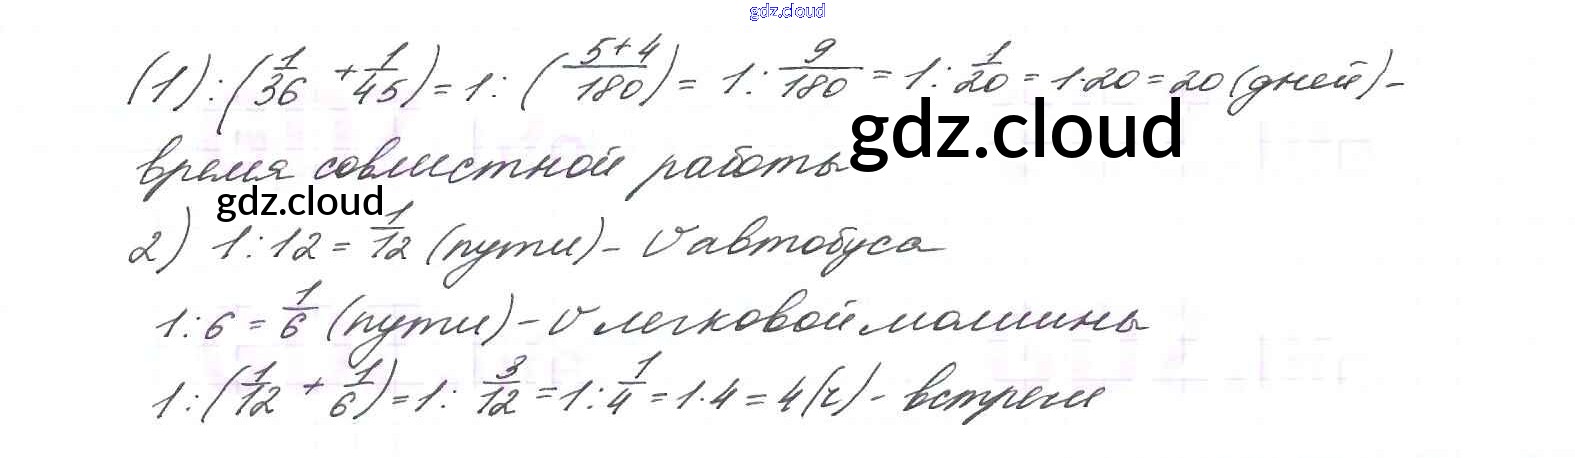 gdz.cloud
(1) : (1/36 + 1/45) = 1 : (5+4/180) = 1 : 9/180 = 1 : 1/20 = 1·20 = 20 (дней) –
gdz.cloud
время совместной работы
gdz.cloud
2) 1 : 12 = 1/12 (пути) – V автобуса
1 : 6 = 1/6 (пути) – V легковой машины
1 : (1/12 + 1/6) = 1 : 3/12 = 1 : 1/4 = 1·4 = 4 (ч) – встречи